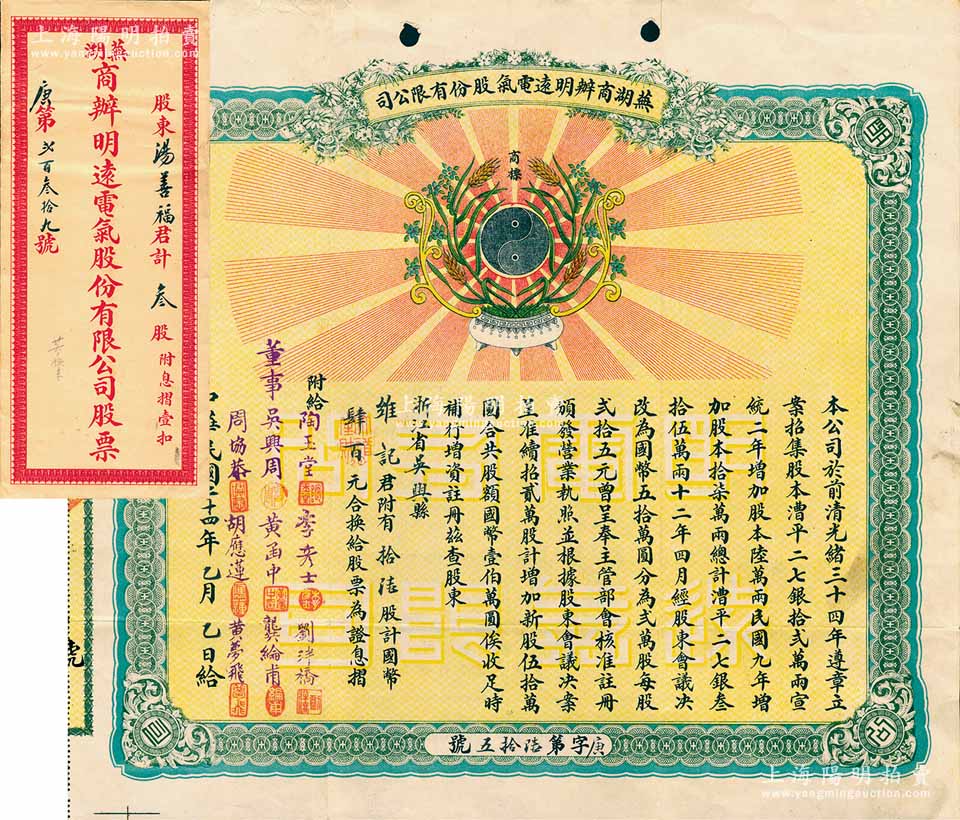 上海陽明拍賣
www.yangmingauction.com
股東湯善福君計叁股附息摺壹扣
蕪湖商辦明遠電氣股份有限公司股票
庚第弍百叁拾九號
蕪湖商辦明遠電氣股份有限公司
商標
本公司於前清光緒三十四年遵章立
案招集股本漕平二七銀拾弍萬兩宣
統二年增加股本陸萬兩民國九年增
加股本拾柒萬兩總計漕平二七銀叁
拾伍萬兩十二年四月經股東會議決
改為國幣五拾萬圓分為弍萬股每股
弍拾五元曾呈奉主管部會核准註冊
頒發營業執照並根據股東會議決案
呈准續招貳萬股計增加新股伍拾萬
圓合共股額國幣壹伯萬圓俟收足時
補行增資註冊茲查股東
浙江省吳興縣
雄記君附有拾陸股計國幣
肆百元合換給股票為證息摺
附給
董事
陶玉堂 李奕士 劉漢橋
吳興周 黃函中 龔綸甫
周協恭 胡應蓮 黃夢飛
中華民國二十四年乙月乙日給
庚字第陸拾五號
號
上海陽明拍賣
www.yangmingauction.com